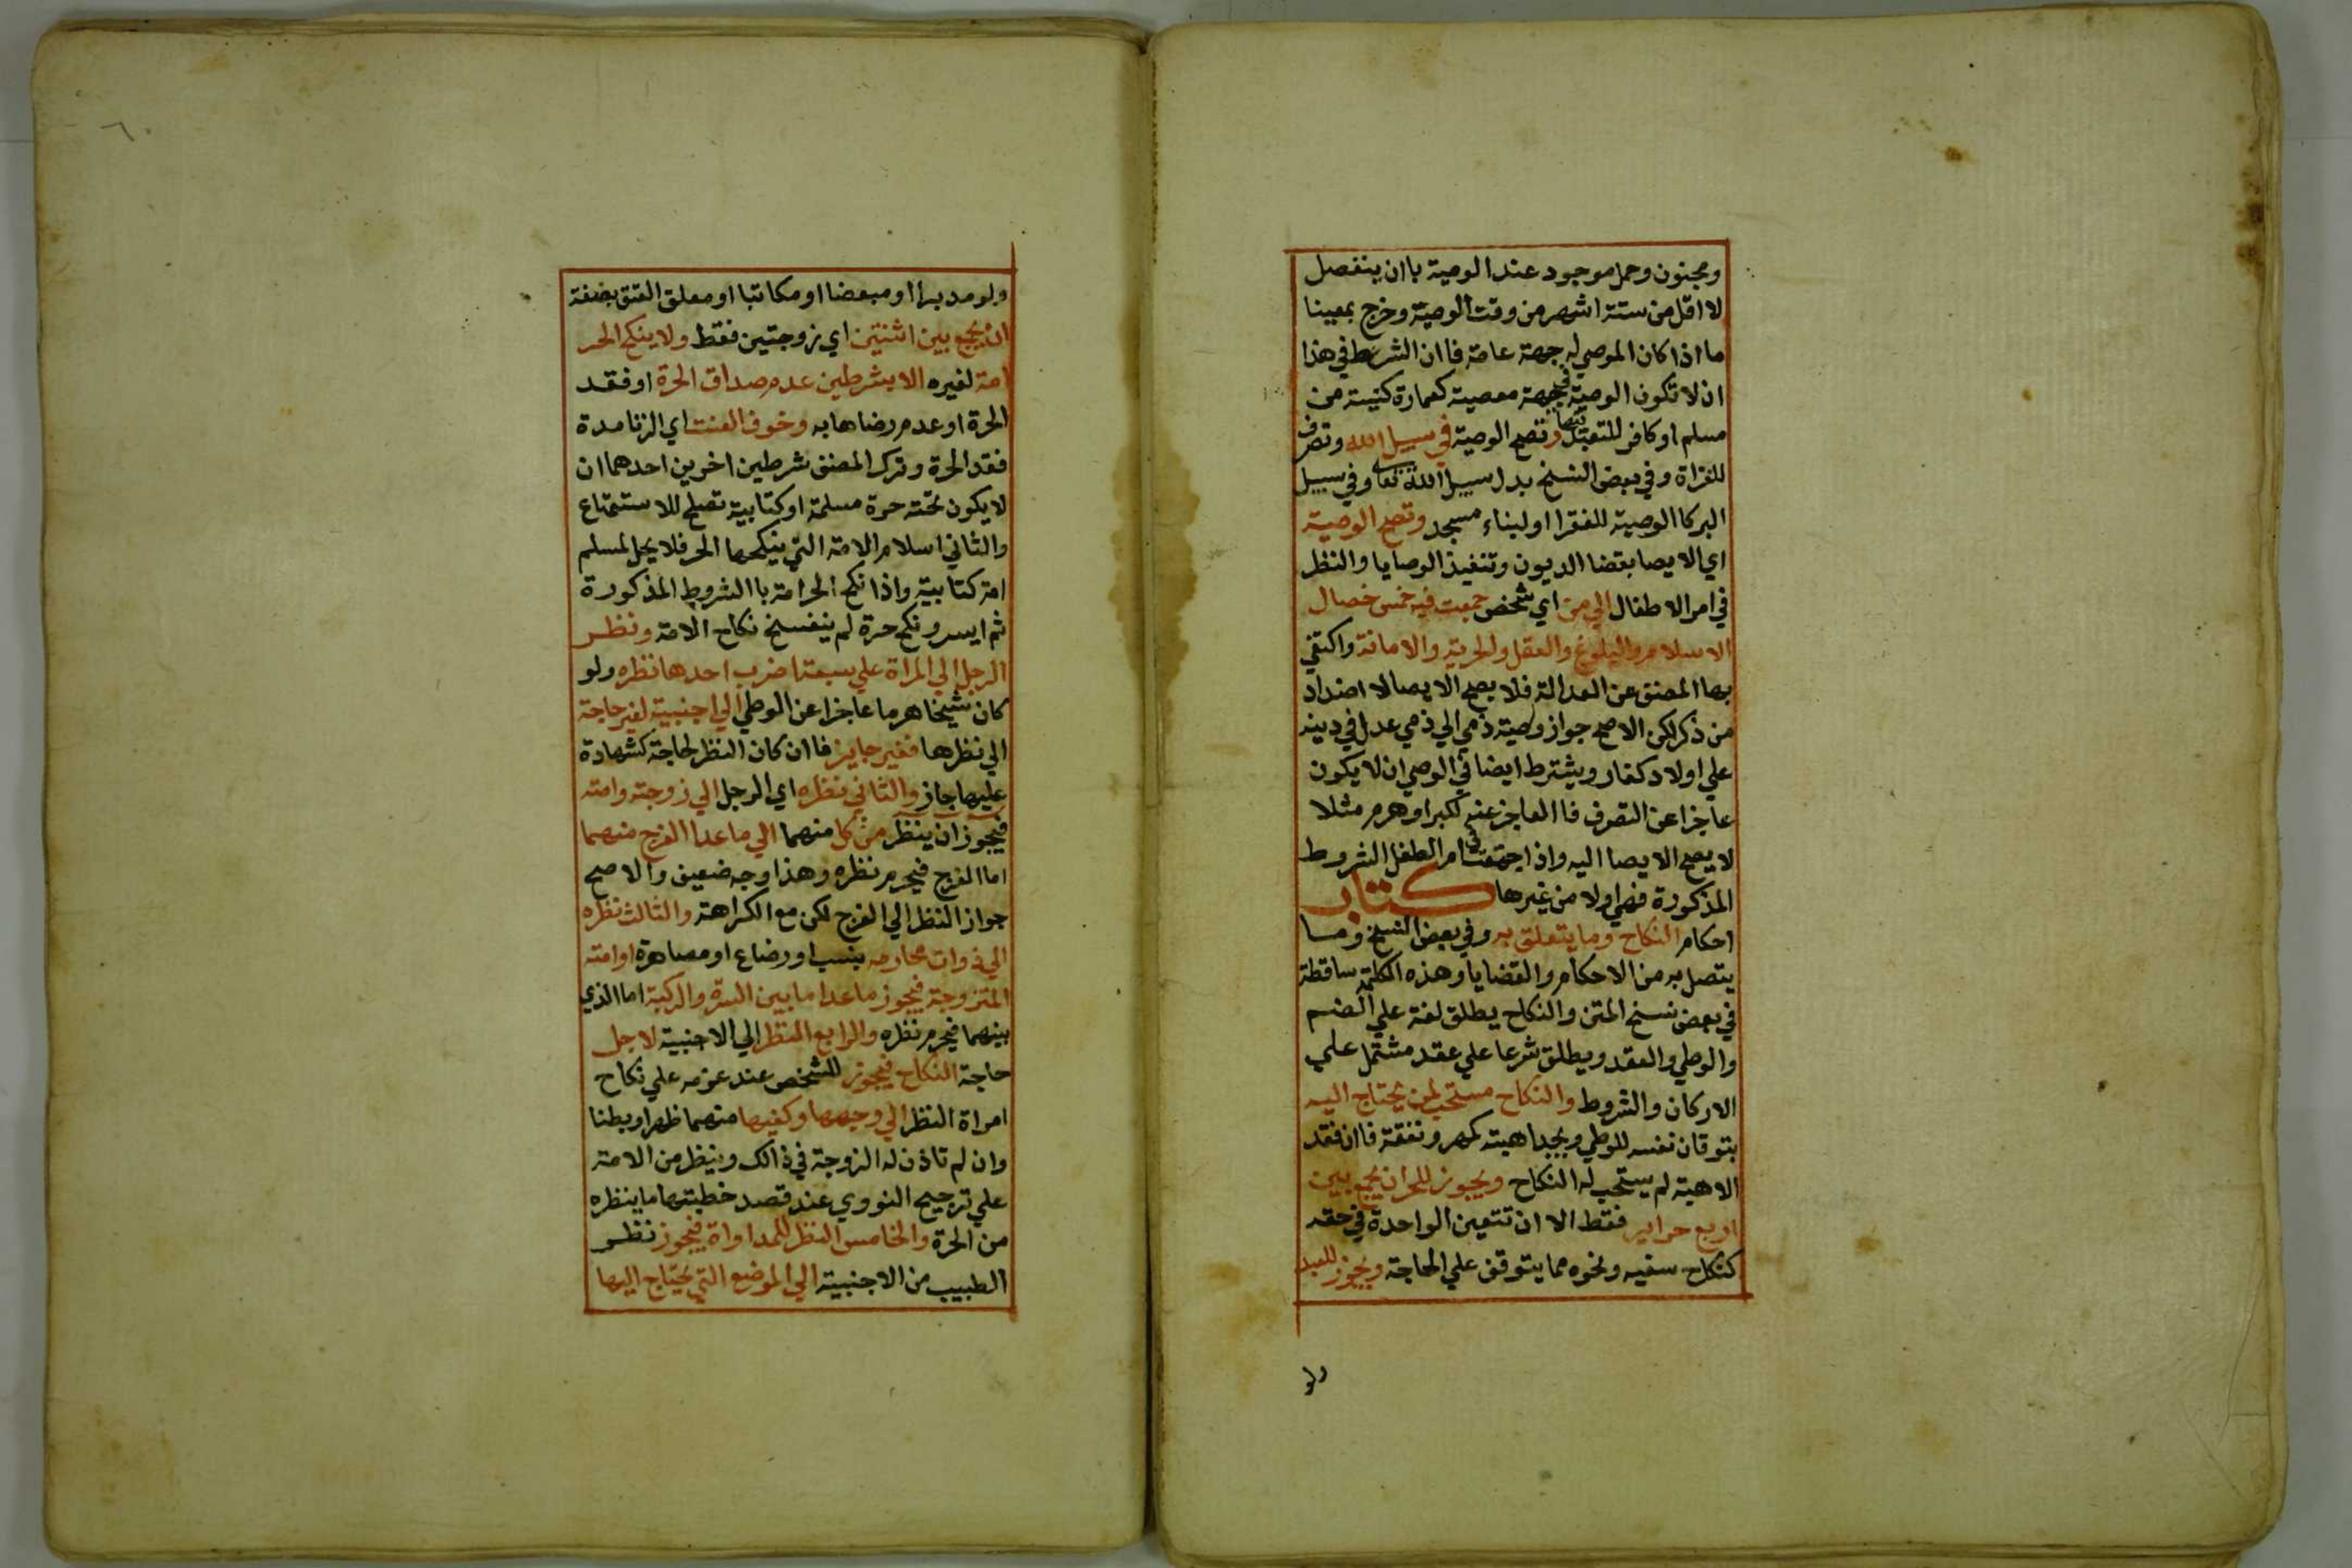 ومجنون وحمل موجود عند الوصية باان ينفصل
لاقل من ستة اشهر من وقت الوصية وخرج بمعينا
ما اذا كان الموصي له جهة عامة فاان الشرط في هذا
ان لا تكون الوصية في جهة معصية كعمارة كنيسة من
مسلم او كافر للتعبد فيها وتصح الوصية في سبيل الله وتصرف
للغزاة وفي بعض النسخ بدل سبيل الله تعا وفي سبيل
البر كاالوصية للفقرا او لبناء مسجد وتصح الوصية
اي الايصا بقضا الديون وتنفيذ الوصايا والنظر
في امر الاطفال الي من اي شخص جمعت فيه خمس خصال
الاسلام والبلوغ والعقل والحرية والامانة واكتفي
بها المصنف عن العدالة فلا يصح الايصا لا اضداد
من ذكر لكن الاصح جواز وصية ذمي الي ذمي عدل في دينه
علي اولاد كفار ويشترط ايضا في الوصي ان لا يكون
عاجزا عن التصرف فاالعاجز عنه لكبر او هرم مثلا
لا يصح الايصا اليه واذا اجتمعت في ام الطفل الشروط
المذكورة فهي اولا من غيرها كتاب
احكام النكاح وما يتعلق به وفي بعض النسخ وما
يتصل به من الاحكام والقضايا وهذه الكلمة ساقطة
في بعض نسخ المتن والنكاح يطلق لغة علي الضم
والوطي والعقد ويطلق شرعا علي عقد مشتمل علي
الاركان والشروط والنكاح مستحب لمن يحتاج اليه
بتوقان نفسه للوطي ويجد اهبته كمهر ونفقة فاان فقد
الاهبة لم يستحب له النكاح ويجوز للحر ان يجمع بين
اربع حراير فقط الا ان تتعين الواحدة في حقه
كنكاح سفيه ونحوه مما يتوقف علي الحاجة ويجوز للعبد
ولو
٦٠
ولو مدبرا او مبعضا او مكاتبا او معلق العتق بصفة
ان يجمع بين اثنتين اي زوجتين فقط ولا ينكح الحر
امة لغيره الا بشرطين عدم صداق الحرة او فقد
الحرة او عدم رضاها به وخوف العنت اي الزنا مدة
فقد الحرة وترك المصنف شرطين اخرين احدهما ان
لا يكون تحته حرة مسلمة او كتابية تصلح للاستمتاع
والثاني اسلام الامة التي ينكحها الحر فلا يحل لمسلم
امة كتابية واذا نكح الحر امة باالشروط المذكورة
ثم ايسر ونكح حرة لم ينفسخ نكاح الامة ونظر
الرجل الي المراة علي سبعة اضرب احدها نظره ولو
كان شيخا هرما عاجزا عن الوطي الي اجنبية لغير حاجة
الي نظرها فغير جايز فاان كان النظر لحاجة كشهادة
عليها جاز والثاني نظره اي الرجل الي زوجته وامته
فيجوز ان ينظر من كل منهما الي ما عدا الفرج منهما
اما الفرج فيحرم نظره وهذا وجه ضعيف والاصح
جواز النظر الي الفرج لكن مع الكراهة والثالث نظره
الي ذوات محارمه بنسب او رضاع او مصاهرة او امته
المتزوجة فيجوز ما عدا ما بين السرة والركبة اما الذي
بينهما فيحرم نظره والرابع النظر الي الاجنبية لاجل
حاجة النكاح فيجوز للشخص عند عزمه علي نكاح
امراة النظر الي وجهها وكفيها منهما ظهرا وبطنا
وان لم تاذن له الزوجة في ذالك وينظر من الامة
علي ترجيح النووي عند قصد خطبتها ما ينظره
من الحرة والخامس النظر للمداواة فيجوز نظر
الطبيب من الاجنبية الي الموضع التي يحتاج اليها